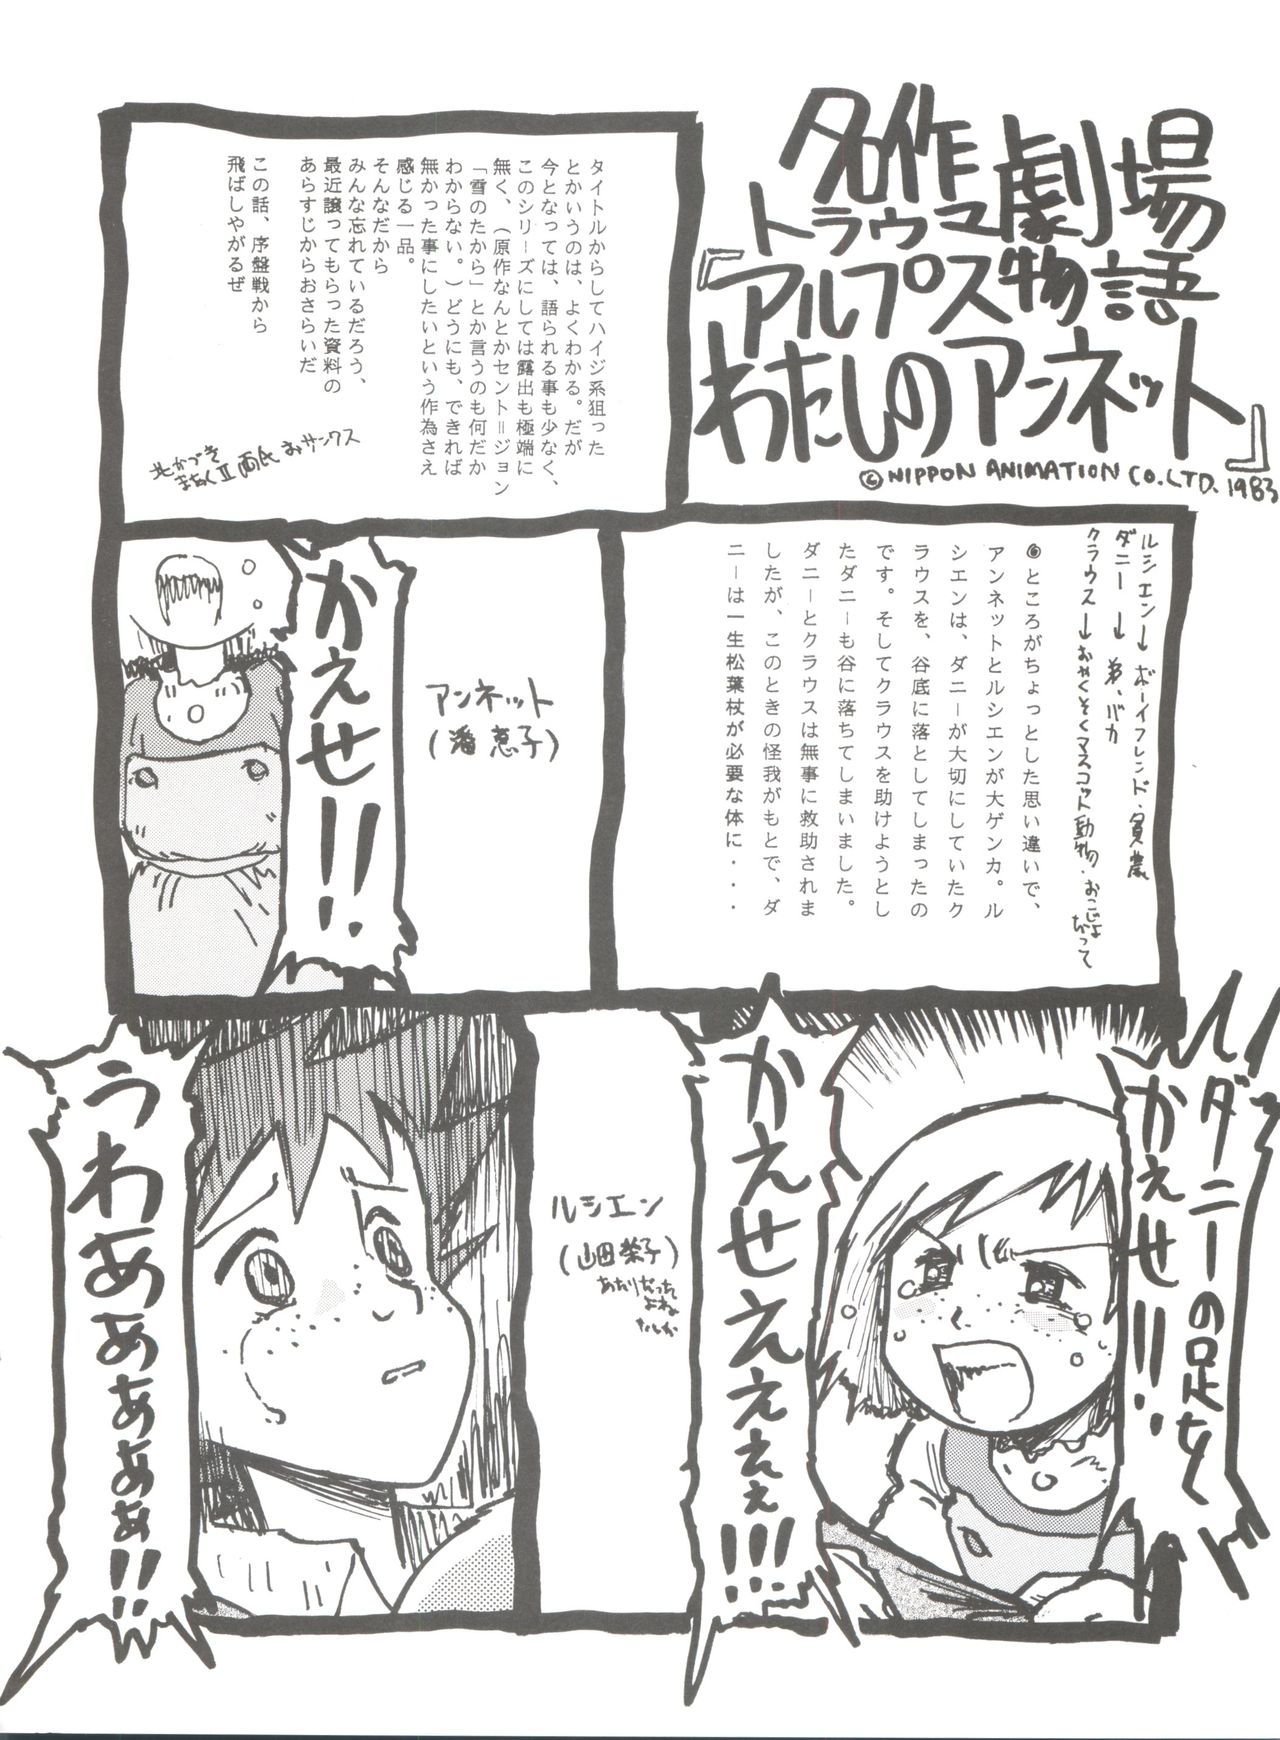 名作
トラウマ劇場
『アルプス物語
わたしのアンネット』
©NIPPON ANIMATION CO.LTD. 1983
タイトルからしてハイジ系狙った
とかいうのは、よくわかる。だが
今となっては、語られる事も少なく、
このシリーズにしては露出も極端に
無く、（原作なんとかセント＝ジョン
「雪のたから」とか言うのも何だか
わからない。）どうにも、できれば
無かった事にしたいという作為さえ
感じる一品。
そんなだから
みんな忘れているだろう、
最近譲ってもらった資料の
あらすじからおさらいだ
この話、序盤戦から
飛ばしやがるぜ
両氏 みサンクス
ルシエン→ボーイフレンド・貧農
ダニー→弟、バカ
クラウス→おやくそくマスコット動物・おこじょ
だって
⦿ところがちょっとした思い違いで、
アンネットとルシエンが大ゲンカ。ル
シエンは、ダニーが大切にしていたク
ラウスを、谷底に落としてしまったの
です。そしてクラウスを助けようとし
たダニーも谷に落ちてしまいました。
ダニーとクラウスは無事に救助されま
したが、このときの怪我がもとで、ダ
ニーは一生松葉杖が必要な体に・・・
アンネット
(潘恵子)
かえせ!!
ダニーの足を
かえせ!!
かえせえぇぇぇ!!!
ルシエン
(山田栄子)
あたりだった
よね
たしか
うわあぁぁぁぁ!!